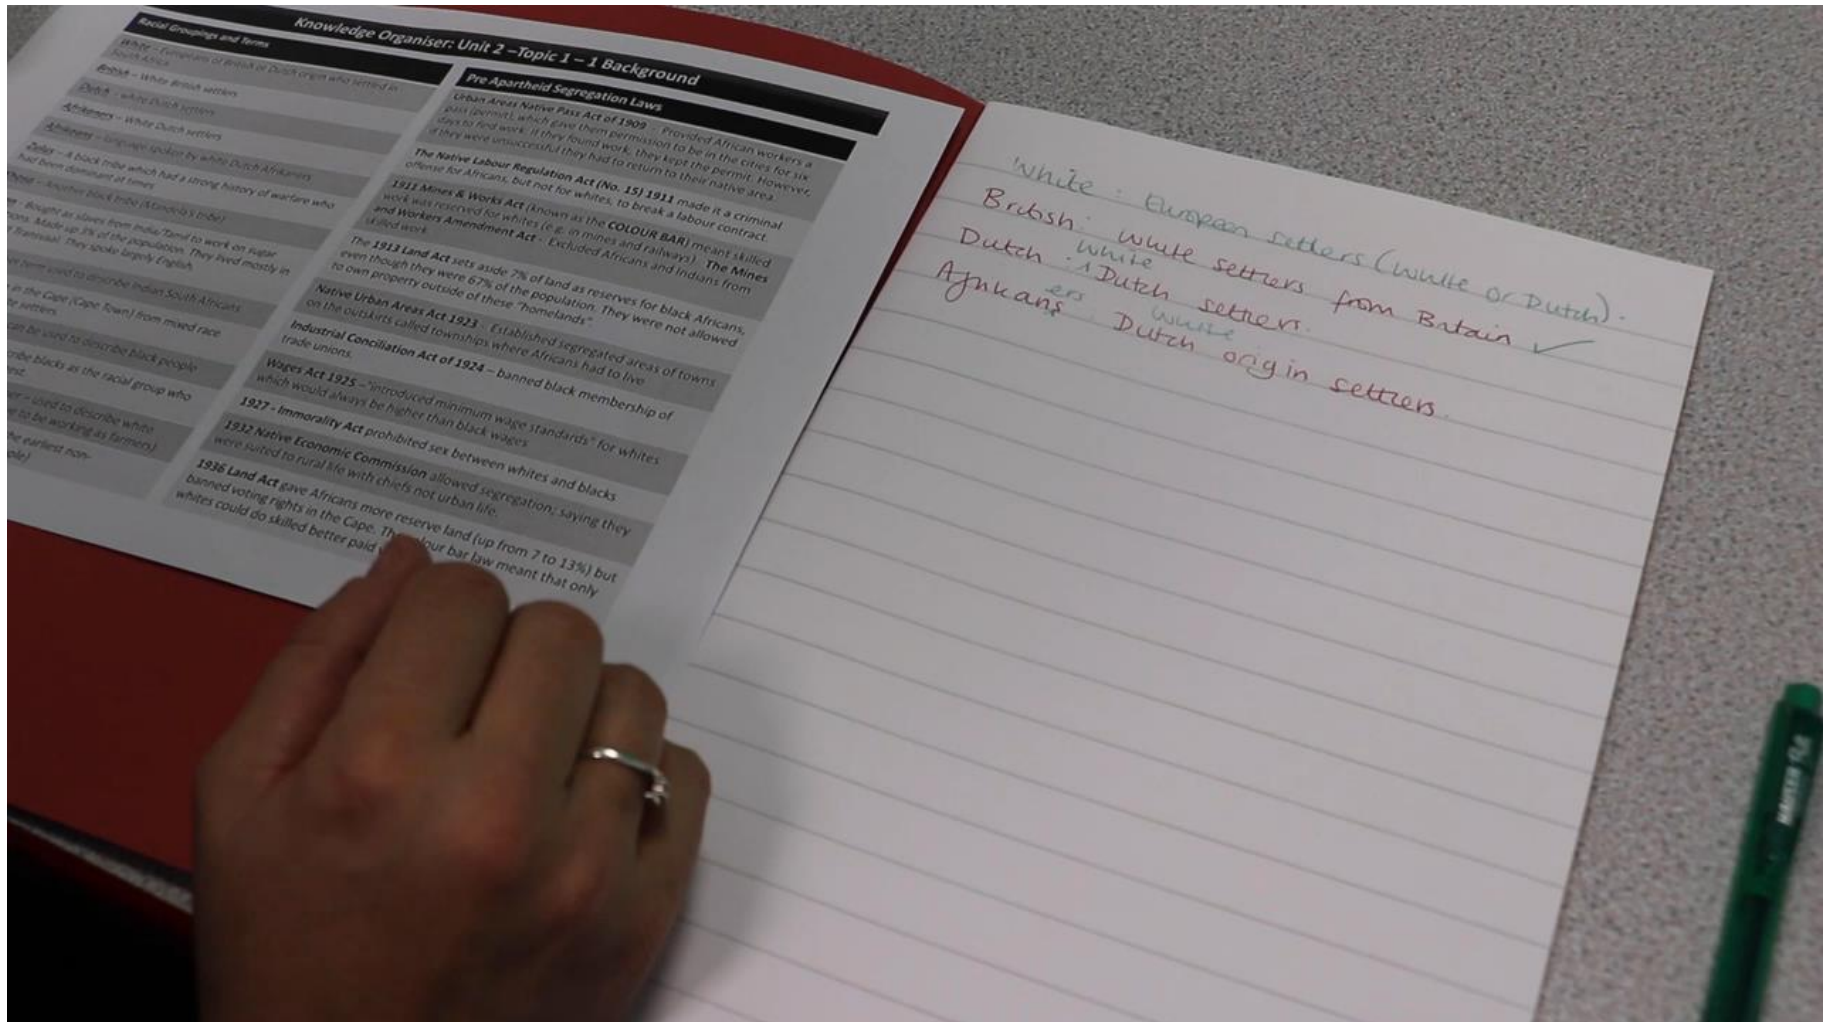 Knowledge Organiser: Unit 2 –Topic 1 – 1 Background
Racial Groupings and Terms
White – Europeans of British or Dutch origin who settled in
South Africa
British – White British settlers
Dutch – white Dutch settlers
Afrikaners – White Dutch settlers
Afrikaans – language spoken by white Dutch Afrikaners
Zulus – A black tribe which had a strong history of warfare who
had been dominant at times
– Another black tribe (Mandela's tribe)
- Bought as slaves from India/Tamil to work on sugar
. Made up 3% of the population. They lived mostly in
Transvaal). They spoke largely English.
term used to describe Indian South Africans
in the Cape (Cape Town) from mixed race
settlers.
can be used to describe black people
blacks as the racial group who
– used to describe white
to be working as farmers)
earliest non-
Pre Apartheid Segregation Laws
Urban Areas Native Pass Act of 1909 - Provided African workers a
pass (permit), which gave them permission to be in the cities for six
days to find work. If they found work, they kept the permit. However,
if they were unsuccessful they had to return to their native area.
The Native Labour Regulation Act (No. 15) 1911 made it a criminal
offense for Africans, but not for whites, to break a labour contract.
1911 Mines & Works Act (known as the COLOUR BAR) meant skilled
work was reserved for whites (e.g. in mines and railways). The Mines
and Workers Amendment Act - Excluded Africans and Indians from
skilled work.
The 1913 Land Act sets aside 7% of land as reserves for black Africans,
even though they were 67% of the population. They were not allowed
to own property outside of these "homelands"
Native Urban Areas Act 1923 - Established segregated areas of towns
on the outskirts called townships where Africans had to live
Industrial Conciliation Act of 1924 – banned black membership of
trade unions.
Wages Act 1925 – "introduced minimum wage standards" for whites
which would always be higher than black wages
1927 - Immorality Act prohibited sex between whites and blacks
1932 Native Economic Commission allowed segregation; saying they
were suited to rural life with chiefs not urban life.
1936 Land Act gave Africans more reserve land (up from 7 to 13%) but
banned voting rights in the Cape. The colour bar law meant that only
whites could do skilled better paid
White : European settlers (white or Dutch).
British: white settlers from Britain ✓
white
Dutch : Dutch settlers.
ers white
Afrikans Dutch origin settlers.